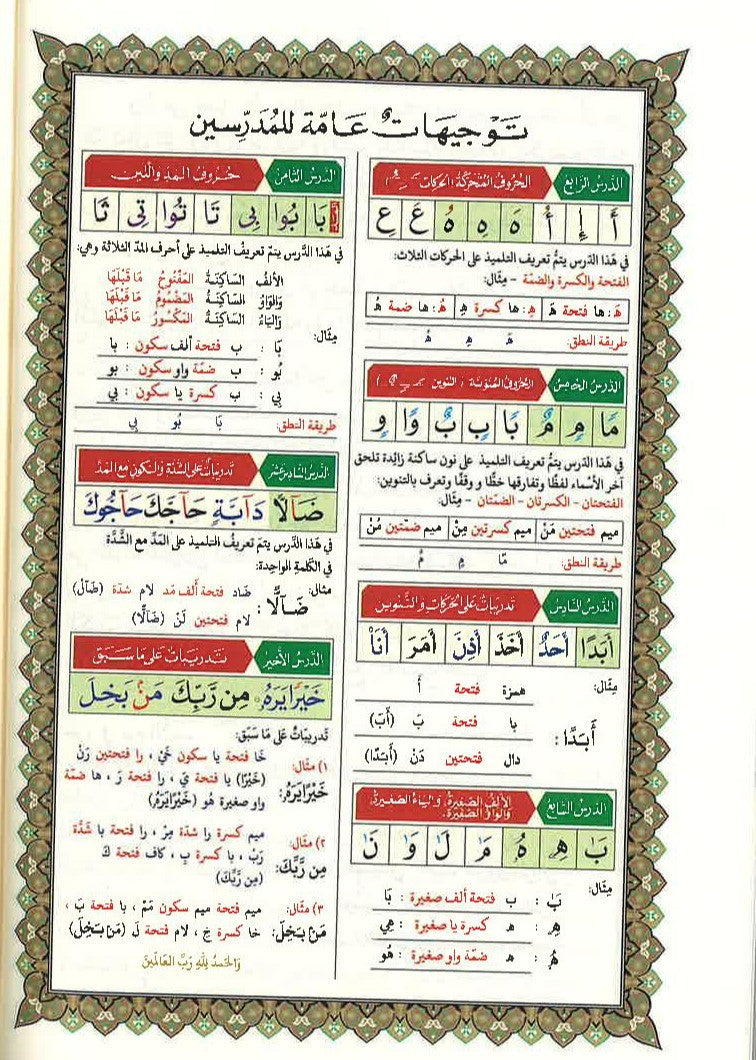 توجيهات عامة للمدرسين
الدرس الرابع
الحروف المتحركة (الحركات ـَـِـُ)
أَ إِ أُ هَ هِ هُ عَ عِ
في هذا الدرس يتم تعريف التلميذ على الحركات الثلاث:
الفتحة والكسرة والضمة - مثال:
هَ: ها فتحة هَ هِ: ها كسرة هِ هُ: ها ضمة هُ
طريقة النطق: هَ هِ هُ
الدرس الخامس
الحروف المنونة (التنوين ـًـٍـٌ)
مًا مٍ مٌ بًا بٍ بٌ وًا وٍ
في هذا الدرس يتم تعريف التلميذ على نون ساكنة زائدة تلحق
آخر الأسماء لفظًا وتفارقها خطًّا ووقفًا وتعرف بالتنوين:
الفتحتان - الكسرتان - الضمتان - مثال:
ميم فتحتين مَنْ ميم كسرتين مِنْ ميم ضمّتين مُنْ
طريقة النطق: مًا مٍ مٌ
الدرس السادس
تدريبات على الحركات والتنوين
أَبَدًا أَحَدٌ أَخَذَ أَذِنَ أَمَرَ أَنَا۠
مثال:
همزة فتحة أَ
با فتحة بَ (أَبَ)
أَبَدًا:
دال فتحتين دَنْ (أَبَدًا)
الدرس السابع
الألف الصغيرة، والياء الصغيرة،
والواو الصغيرة.
بَٰ هِۦ هُۥ مَٰ لَٰ وَٰ نَٰ
مثال:
بَٰ: ب فتحة ألف صغيرة: بَا
هِۦ: ه كسرة يا صغيرة: هِي
هُۥ: ه ضمة واو صغيرة: هُو
الدرس الثامن
حروف المد واللين
بَا بُوا بِي تَا تُوا تِي ثَا
في هذا الدرس يتم تعريف التلميذ على أحرف المد الثلاثة وهي:
الألف الساكنة المفتوح ما قبلها
والواو الساكنة المضموم ما قبلها
والياء الساكنة المكسور ما قبلها
مثال:
بَا: ب فتحة ألف سكون: با
بُو: ب ضمة واو سكون: بو
بِي: ب كسرة يا سكون: بي
طريقة النطق: بَا بُو بِي
الدرس السادس عشر
تدريبات على الشدة والسكون مع المد
ضَآلًّا دَآبَّةٍ حَآجَّكَ حَآجُّوكَ
في هذا الدرس يتم تعريف التلميذ على المد مع الشدَّة
في الكلمة الواحدة:
مثال:
ضاد فتحة ألف مد لام شدة (ضَآلّ)
ضَآلًّا:
لام فتحتين لَنْ (ضَآلًّا)
الدرس الأخير
تدريبات على ما سبق
خَيْرًا يَرَهُۥ مِن رَّبِّكَ مَنۢ بَخِلَ
تدريبات على ما سبق:
١) مثال:
خَيْرًا يَرَهُۥ:
خا فتحة يا سكون خَيْ، را فتحتين رَنْ
(خَيْرًا) يا فتحة يَ، را فتحة رَ، ها ضمة
واو صغيرة هُو (خَيْرًا يَرَهُۥ)
٢) مثال:
مِن رَّبِّكَ:
ميم كسرة را شدة مِرْ، را فتحة با شدَّة
رَبْ، با كسرة بِ، كاف فتحة كَ
(مِن رَّبِّكَ)
٣) مثال:
مَنۢ بَخِلَ:
ميم فتحة ميم سكون مَمْ، با فتحة بَ،
خا كسرة خِ، لام فتحة لَ (مَنۢ بَخِلَ)
والحمد لله رب العالمين